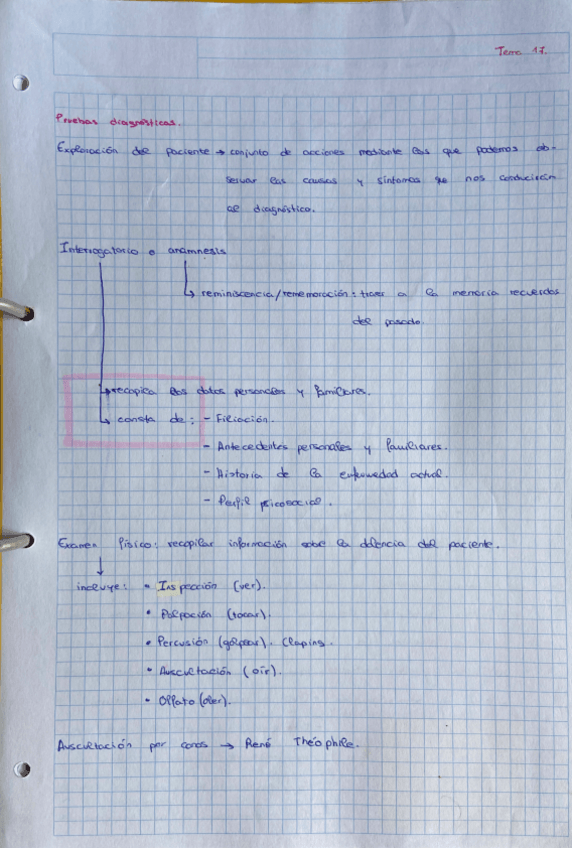 Tema 17.
Pruebas diagnósticas.
Exploración del paciente → conjunto de acciones mediante las que podemos ob-
servar las causas y síntomas que nos conducirán
al diagnóstico.
Interrogatorio o anamnesis
↳ reminiscencia/rememoración: traer a la memoria recuerdos
del pasado.
↳ recopila los datos personales y familiares.
↳ consta de: - Filiación.
- Antecedentes personales y familiares.
- Historia de la enfermedad actual.
- Perfil psicosocial.
Examen físico: recopilar información sobre la dolencia del paciente.
↓
incluye: • Inspección (ver).
• Palpación (tocar).
• Percusión (golpear). Claping.
• Auscultación (oír).
• Olfato (oler).
Auscultación por conos → René Théophile.